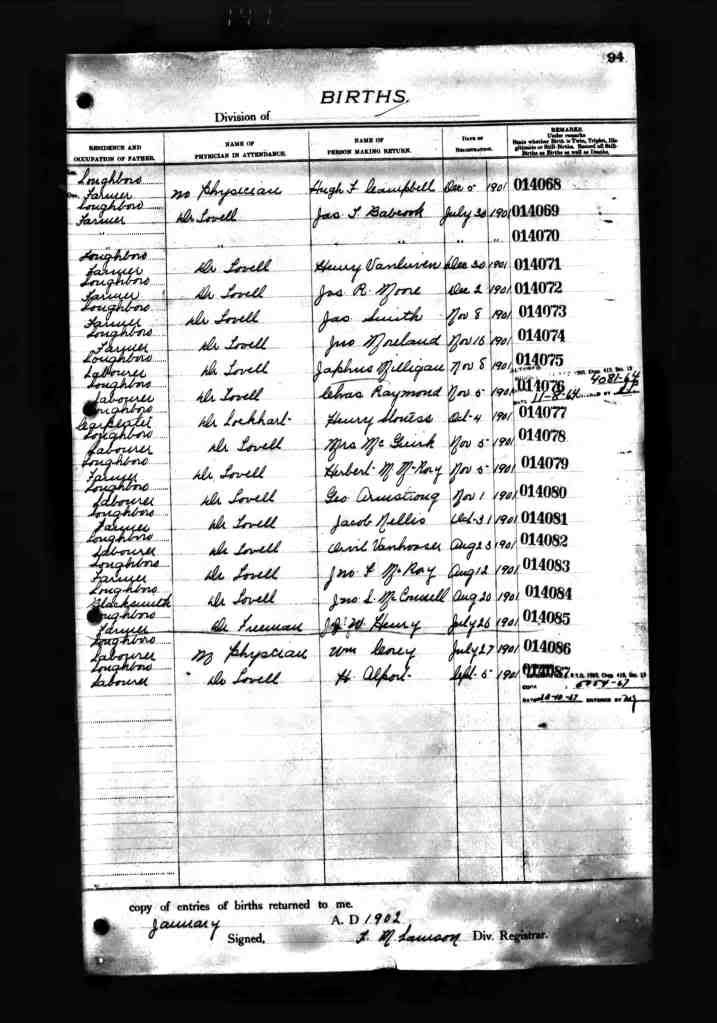 94
BIRTHS.
Division of
RESIDENCE AND OCCUPATION OF FATHER. NAME OF PHYSICIAN IN ATTENDANCE. NAME OF PERSON MAKING RETURN. DATE OF REGISTRATION. REMARKS.
Under remarks State whether Birth is Twin, Triplet, Illegitimate or Still-Births. Record all Still-Births as Births as well as Deaths.
Loughboro
Farmer No Physician Hugh F Campbell Dec 5 1901 014068
Loughboro
Farmer Dr Lovell Jas T Babcook July 30 1901 014069
" " " " " 014070
Loughboro
Farmer Dr Lovell Henry Vanluven Dec 30 1901 014071
Loughboro
Farmer Dr Lovell Jas R. Moore Dec 2 1901 014072
Loughboro
Farmer Dr Lovell Jas Smith Nov 8 1901 014073
Loughboro
Farmer Dr Lovell Jno Moreland Nov 16 1901 014074
Loughboro
Labourer Dr Lovell Japhus Milligan Nov 8 1901 014075
4081-64
Loughboro
Labourer Dr Lovell Raymond Nov 5 1901 014076
11-8-64
Loughboro
Carpenter Dr Lockhart Henry Oct 4 1901 014077
Loughboro
Labourer Dr Lovell Mrs McGuirk Nov 5 1901 014078
Loughboro
Farmer Dr Lovell Herbert M McRory Nov 5 1901 014079
Loughboro
Labourer Dr Lovell Geo Armstrong Nov 1 1901 014080
Loughboro
Farmer Dr Lovell Jacob Nellis Oct 31 1901 014081
Loughboro
Labourer Dr Lovell Orvil Vanhooser Aug 23 1901 014082
Loughboro
Farmer Dr Lovell Jno F McRory Aug 12 1901 014083
Loughboro
Blacksmith Dr Lovell Jno S. McConnell Aug 20 1901 014084
Loughboro
Farmer Dr Freeman Henry July 26 1901 014085
Loughboro
Labourer No Physician Wm Corey July 27 1901 014086
Loughboro
Labourer Dr Lovell H Alport Sept 5 1901 014087
ENTERED BY
copy of entries of births returned to me.
January A. D 1902
Signed, F. M. Lawson Div. Registrar.